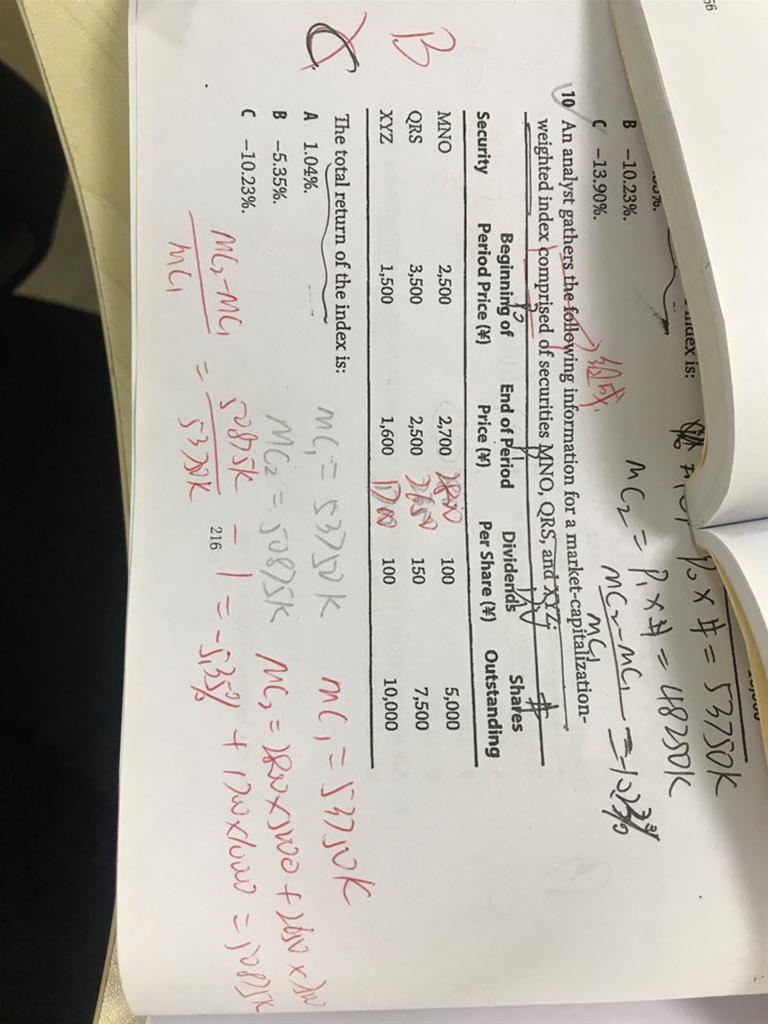 56
ndex is:
P₀ × # = 53750K
B −10.23%.
C −13.90%.
MC₂ = P₁ × # = 48250K
MC₂ − MC₁
MC₁
= −10.23%
组成
10 An analyst gathers the following information for a market-capitalization-
weighted index comprised of securities MNO, QRS, and XYZ:
P₀ P₁ DIV #
Security Beginning of Period Price (¥) End of Period Price (¥) Dividends Per Share (¥) Shares Outstanding
MNO 2,500 2,700 2800 100 5,000
QRS 3,500 2,500 2650 150 7,500
XYZ 1,500 1,600 1700 100 10,000
B
The total return of the index is:
A 1.04%.
B −5.35%.
C −10.23%.
MC₁ = 53750K
MC₂ = 50875K
MC₁ = 53750K
MC₂ = 2800×5000 + 2650×7500
+ 1700×10000 = 50875K
MC₂−MC₁
MC₁
= 50875K
53750K
− 1 = −5.35%
216